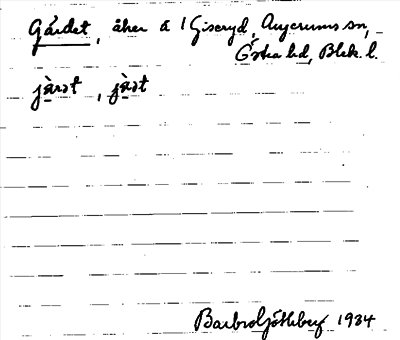 Gärdet, åker å 1 Giseryd, Augerums sn,
Östra hd, Blek. l.
jàrət, jàrət
Barbro Göthberg 1934